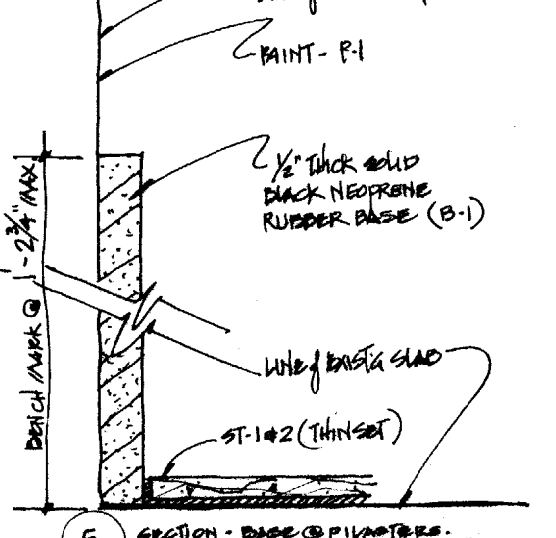 PAINT - P-1
1/2" THICK SOLID
BLACK NEOPRENE
RUBBER BASE (B-1)
BENCH MARK @ 1'-2 3/4" MAX
LINE of EXIST'G SLAB
ST-1&2 (THINSET)
SECTION - BASE @ PILASTERS.